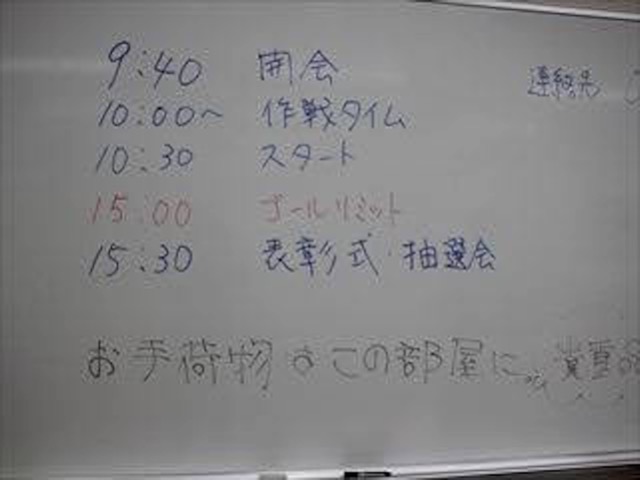 9:40 開会
連絡先
10:00~ 作戦タイム
10:30 スタート
15:00 ゴールリミット
15:30 表彰式・抽選会
お手荷物はこの部屋に 貴重品